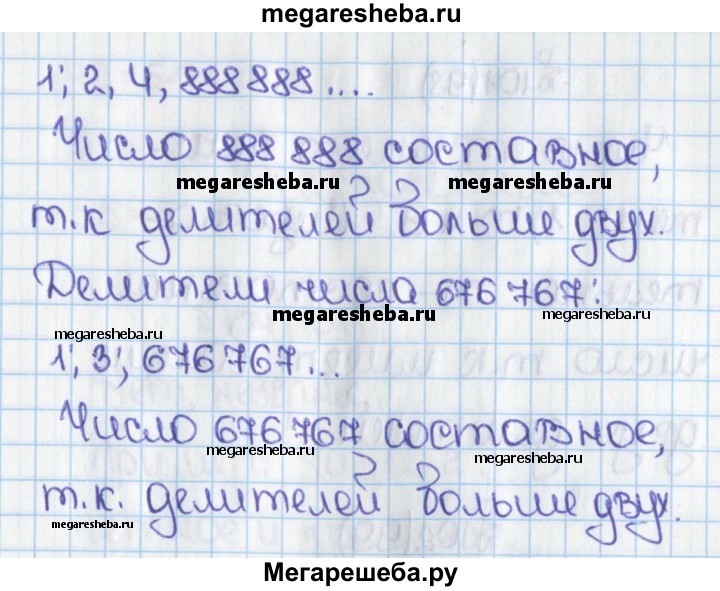 megaresheba.ru
1; 2, 4, 888 888....
Число 888 888 составное,
megaresheba.ru megaresheba.ru
т.к делителей больше двух.
Делители числа 676 767:
megaresheba.ru megaresheba.ru
1; 3; 676 767...
Число 676 767 составное,
megaresheba.ru megaresheba.ru
т.к. делителей больше двух.
megaresheba.ru megaresheba.ru
Мегарешеба.ру